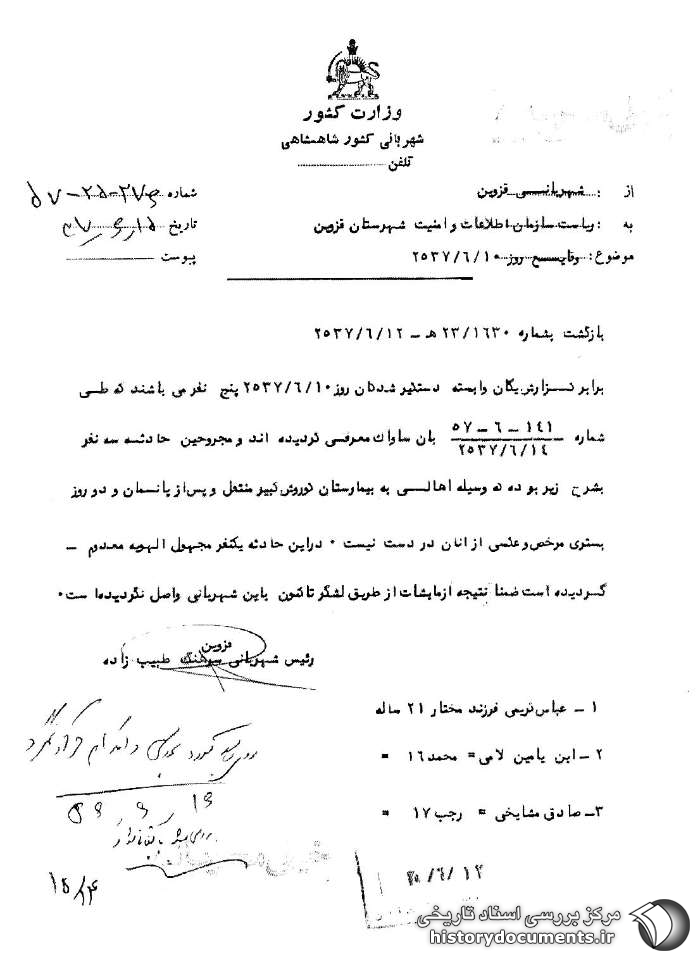 وزارت کشور
شهربانی کشور شاهنشاهی
تلفن
از : شهربانی قزوین
شماره
به : ریاست سازمان اطلاعات و امنیت شهرستان قزوین
تاریخ
موضوع : وقایع روز ۲۵۳۷/۶/۱۰
پیوست
بازگشت بشماره ۲۳/۱۶۳۰ هـ – ۲۵۳۷/۶/۱۲
برابر گزارش یگان وابسته دستگیر شدگان روز ۲۵۳۷/۶/۱۰ پنج نفر می باشند که طی
شماره ۱۴۱ – ۶ – ۵۷ بان ساواك معرفی گردیده اند و مجروحین حادثه سه نفر
۲۵۳۷/۶/۱۴
بشرح زیر بوده که وسیله اهالی به بیمارستان کوروش کبیر منتقل و پس از پانسمان و دو روز
بستری مرخص و علمی از انان در دست نیست ۰ در این حادثه یکنفر مجهول الهویه معدوم –
گردیده است ضمنا نتیجه ازمایشات از طریق لشگر تاکنون باین شهربانی واصل نگردیده است۰
رئیس شهربانی قزوین سرهنگ طبیب زاده
۱ – عباس کریمی فرزند مختار ۲۱ ساله
۲ – ابن یامین لامی = محمد ۱۶ =
۳ – صادق مشایخی = رجب ۱۷ =
مرکز بررسی اسناد تاریخی
historydocuments.ir